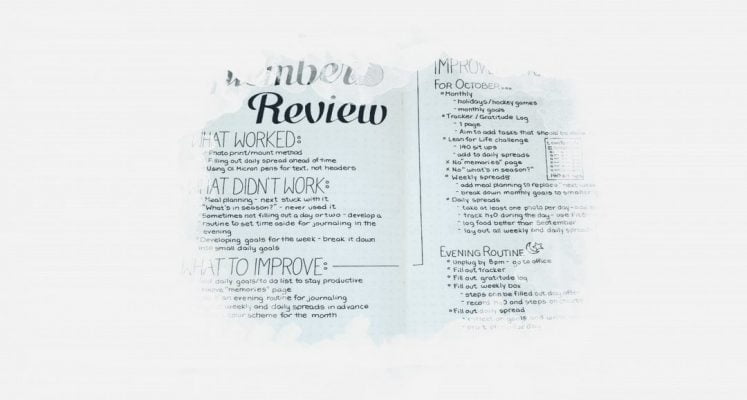 Review
WHAT WORKED:
Photo print/mount method
Filling out daily spread ahead of time
Using 01 Micron pens for text, not headers
WHAT DIDN'T WORK:
Meal planning - next stuck with it
"What's in season?" - never used it
Sometimes not filling out a day or two - develop a
routine to set time aside for journaling in the
evening
*Developing goals for the week - break it down
into small daily goals
WHAT TO IMPROVE:
daily goals/to do list to stay productive
"memories" page
an evening routine for journaling
weekly and daily spreads in advance
scheme for the month
FOR OCTOBER...
*Monthly
- holidays/hockey games
- monthly goals
*Tracker / Gratitude Log
- 1 page
- Aim to add tasks that should be
*Lean for Life challenge
- 140 sit ups
- add to daily spreads
x No "memories" page
x No "what's in season?"
*Weekly spreads
- add meal planning to replace "next week"
- break down monthly goals to smaller
*Daily spreads
- take at least one photo per day - add
- track H2O during the day - use
- log food better than September
- lay out all weekly and daily spreads
EVENING ROUTINE
* Unplug by 8pm - go to office
* Fill out tracker
* Fill out gratitude log
* Fill out weekly box
- steps can be filled out day after
- record H2O and steps on
* Fill out daily spread